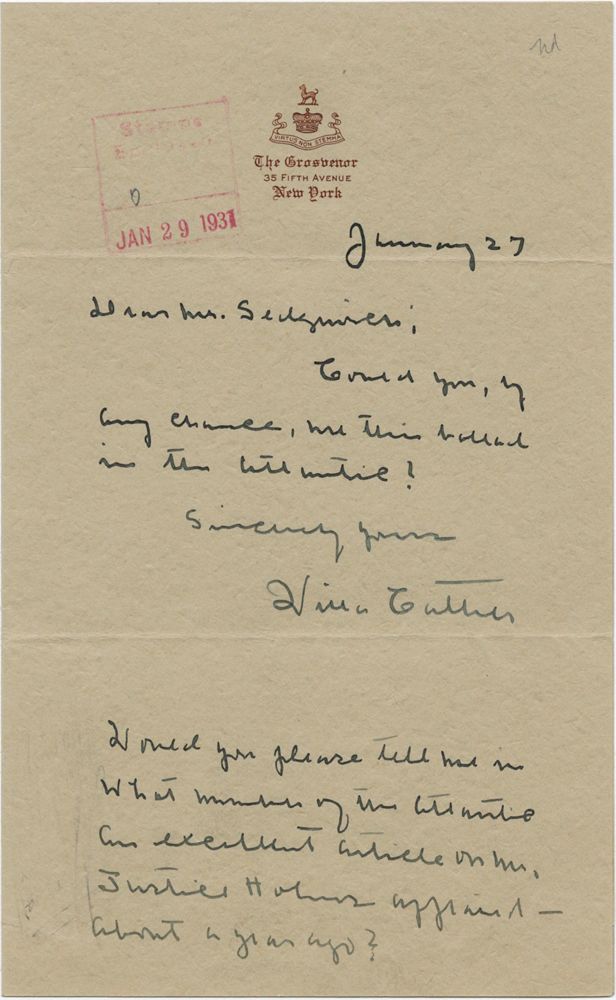 nd
VIRTUS NON STEMMA
The Grosvenor
35 FIFTH AVENUE
New York
JAN 29 1931
January 27
Dear Mr. Sedgwick;
Could you, by
any chance, use this ballad
in the Atlantic?
Sincerely yours
Willa Cather
Would you please tell me in
what number of the Atlantic
an excellent article on Mr.
Justice Holmes appeared —
about a year ago?